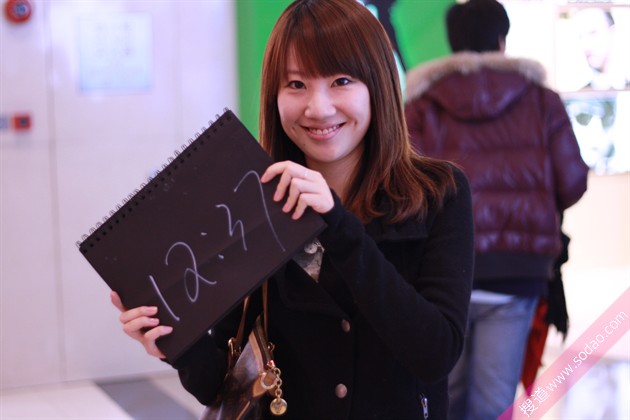 12:37
搜道 www.sodao.com